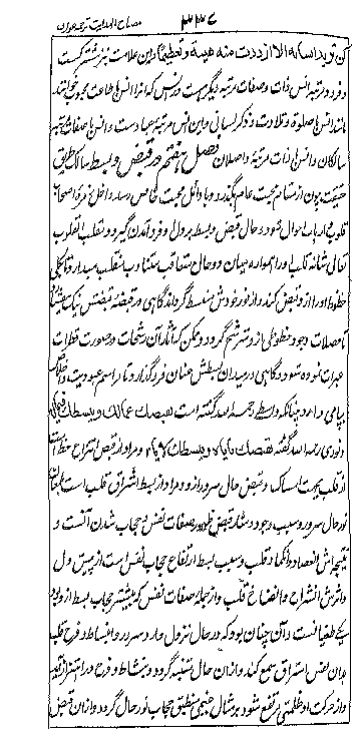 مصباح الهدایت ترجمه عوارف ۳۳۴
آن تزید اساله الا ازددت منه هیبة و تعظیما و این علامت
و فرد در مرتبه انس ذات و صفات مرتبه دیگر هست و انس که
مانند انس با صلوة و تلاوت و ذکر لسانی و این انس مرتبه عباد است و انس با صفات مرتبه
سالکان و انس با ذات مرتبه واصلان فصل هفتم در قبض و بسط سالک طریق
حقیقت چون از مقام محبت عام بگذرد و باوائل محبت خاص رسد داخل زمره اصحاب
قلوب و ارباب احوال شود و حال قبض و بسط بر دل او فرود آمدن گیرد و مقلب القلوب
تعالی شانه قلب او را همواره میان دو حال متعاقب متناوب منقلب میدارد تا بکلی
حظوظ او را از و قبض کند و از نور خودش منبسط گرداند گاهی در قبضه قبضش
تا فضلات وجود حظوظی از و مترشح گردد و ممکن که آثار آن رشحات در صورت قطرات
عبرات نموده شود و گاهی در میدان بسطش عنان فروگذارد تا در اسم عبودیت و
بپای دارد چنانکه واسطی رحمه الله گفته است یقبضک عما لک و یبسطک فیما له
و نوری رحمه الله گفته یقبضک بایاک و یبسطک لایاه و مراد از قبض انتزاع حظ است
از قلب بجهت امساک و قبض حال سرور از و و مراد از بسط اشراق قلب است
نور حال سرور و سبب وجود قبض ظهور صفات نفس و حجاب شدن آنست و
نتیجه اش انعصار و انکماد قلب و سبب بسط ارتفاع حجاب نفس است از پیش دل
و اثرش انشراح و انفتاح قلب و از جمله صفات نفس که بیشتر حجاب بسط ازو بود
یکی طغیانست و آن چنان بود که در حال نزول وارد سرور و انبساط و فرح قلب
بدان نفس استراق سمع کند و از ان حال متنبه گردد و بنشاط و فرح در اهتزاز آید
و از حرکت او ظلمتی مرتفع شود بر مثال غیمی منطبق حجاب نور حال گردد و از ان قبض